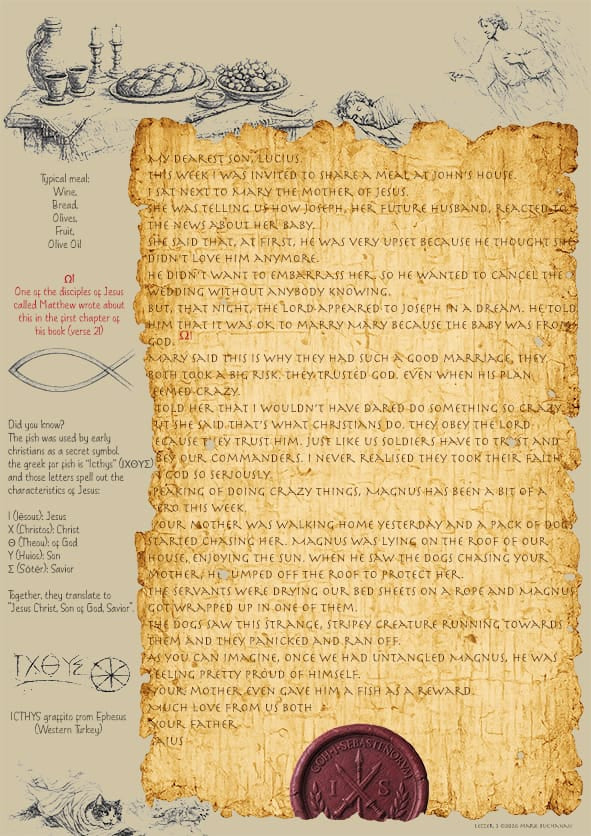 Typical meal:
Wine,
Bread,
Olives,
Fruit,
Olive Oil
Ω!
One of the disciples of Jesus
called Matthew wrote about
this in the first chapter of
his book (verse 21)
Did you know?
The fish was used by early
christians as a secret symbol.
the greek for fish is "Icthys" (ΙΧΘΥΣ)
and those letters spell out the
characteristics of Jesus:
I (Iēsous): Jesus
X (Christos): Christ
Θ (Theou): of God
Y (Huios): Son
Σ (Sōtēr): Savior
Together, they translate to
"Jesus Christ, Son of God, Savior".
ΙΧΘΥΣ
ICTHYS graffito from Ephesus
(Western Turkey)
MY DEAREST SON, LUCIUS.
THIS WEEK I WAS INVITED TO SHARE A MEAL AT JOHN'S HOUSE.
I SAT NEXT TO MARY THE MOTHER OF JESUS.
SHE WAS TELLING US HOW JOSEPH, HER FUTURE HUSBAND, REACTED TO
THE NEWS ABOUT HER BABY.
SHE SAID THAT, AT FIRST, HE WAS VERY UPSET BECAUSE HE THOUGHT SHE
DIDN'T LOVE HIM ANYMORE.
HE DIDN'T WANT TO EMBARRASS HER, SO HE WANTED TO CANCEL THE
WEDDING WITHOUT ANYBODY KNOWING.
BUT, THAT NIGHT, THE LORD APPEARED TO JOSEPH IN A DREAM. HE TOLD
HIM THAT IT WAS OK TO MARRY MARY BECAUSE THE BABY WAS FROM
GOD. Ω!
MARY SAID THIS IS WHY THEY HAD SUCH A GOOD MARRIAGE, THEY
BOTH TOOK A BIG RISK. THEY TRUSTED GOD. EVEN WHEN HIS PLAN
SEEMED CRAZY.
I TOLD HER THAT I WOULDN'T HAVE DARED DO SOMETHING SO CRAZY,
BUT SHE SAID THAT'S WHAT CHRISTIANS DO. THEY OBEY THE LORD
BECAUSE THEY TRUST HIM. JUST LIKE US SOLDIERS HAVE TO TRUST AND
OBEY OUR COMMANDERS. I NEVER REALISED THEY TOOK THEIR FAITH
IN GOD SO SERIOUSLY.
SPEAKING OF DOING CRAZY THINGS, MAGNUS HAS BEEN A BIT OF A
HERO THIS WEEK.
YOUR MOTHER WAS WALKING HOME YESTERDAY AND A PACK OF DOGS
STARTED CHASING HER. MAGNUS WAS LYING ON THE ROOF OF OUR
HOUSE, ENJOYING THE SUN. WHEN HE SAW THE DOGS CHASING YOUR
MOTHER, HE JUMPED OFF THE ROOF TO PROTECT HER.
THE SERVANTS WERE DRYING OUR BED SHEETS ON A ROPE AND MAGNUS
GOT WRAPPED UP IN ONE OF THEM.
THE DOGS SAW THIS STRANGE, STRIPEY CREATURE RUNNING TOWARDS
THEM AND THEY PANICKED AND RAN OFF.
AS YOU CAN IMAGINE, ONCE WE HAD UNTANGLED MAGNUS, HE WAS
FEELING PRETTY PROUD OF HIMSELF.
YOUR MOTHER EVEN GAVE HIM A FISH AS A REWARD.
MUCH LOVE FROM US BOTH
YOUR FATHER
GAIUS
COH·I·SEBASTENORVM
I S
LETTER 3 ©2026 MARK BUCHANAN